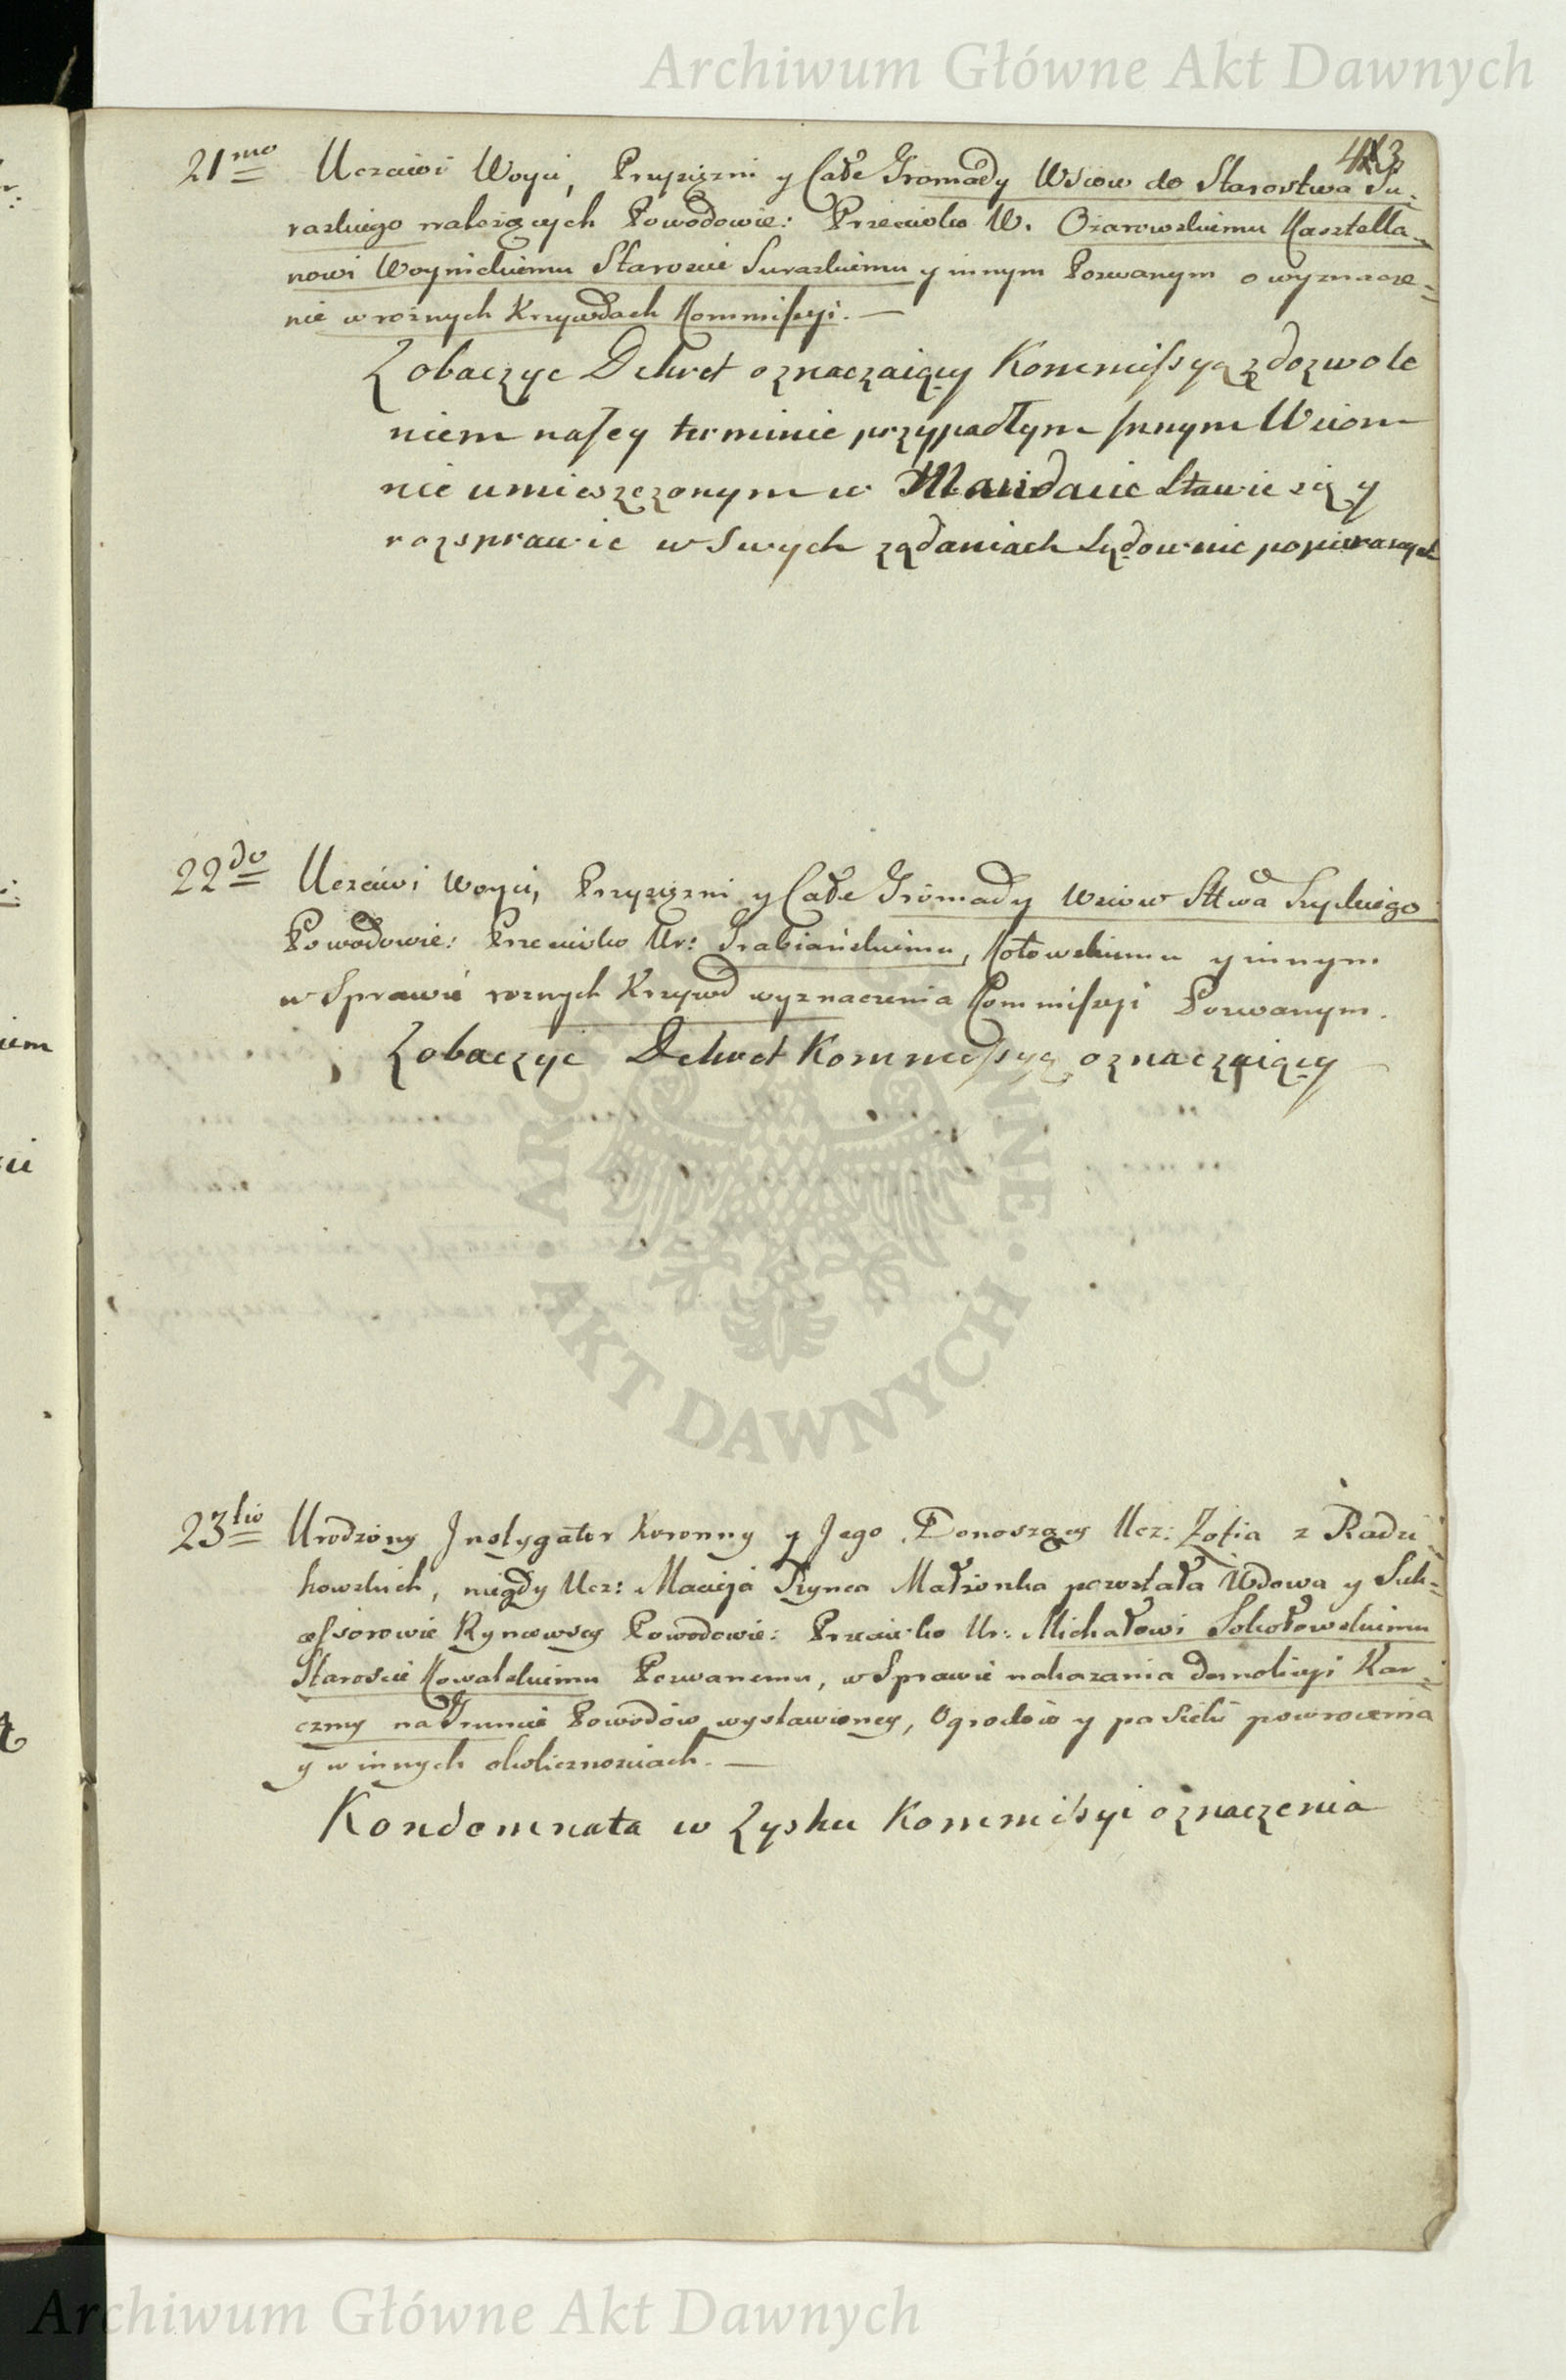 Archiwum Główne Akt Dawnych
21mo Uczciwi Woyci, Przysięzni y Całe Gromady Wsiow do Starostwa Su-
raskiego należących Powodowie: Przeciwko W. Ożarowskiemu Kasztella-
nowi Woynickiemu Staroscie Suraskiemu y innym Pozwanym o wyznacze=
nie w rożnych Krzywdach Kommissyi. —
Zobaczyc Dekret oznaczaiący Kommissyą z dozwole
niem na sey terminie przypadłym Innym Wsiom
nie umieszczonym w Mandacie stawic się y
rozsprawic w swych ządaniach Sądownie popieranych
22do Uczciwi Woyci, Przysięzni y Całe Gromady Wsiow Sttwa
Powodowie: Przeciwko Ur: Grabiańskiemu, Kotowskiemu y innym
w Sprawie roznych Krzywd wyznaczenia Kommissyi Pozwanym.
Zobaczyć Dekret Kommissyą oznaczaiący
23tio Urodzony Instygator Koronny y Jego Donoszący Ucz: Zofia z Radzi
kowskich, niegdy Ucz: Macieja Rynca Małżonka pozostała Wdowa y Suk=
cessorowie Ryncowscy Powodowie: Przeciwko Ur: Michałowi Sokołowskiemu
Staroscie Kowalskiemu Pozwanemu, w Sprawie nakazania demolicyi Kar=
czmy na Gruncie Powodów wystawioney, Ogrodów y pasieki powrocenia
y w innych okolicznosciach. —
Kondemnata w Zysku Kommissyi oznaczenia
ARCHIWUM GŁÓWNE · AKT DAWNYCH ·
Archiwum Główne Akt Dawnych